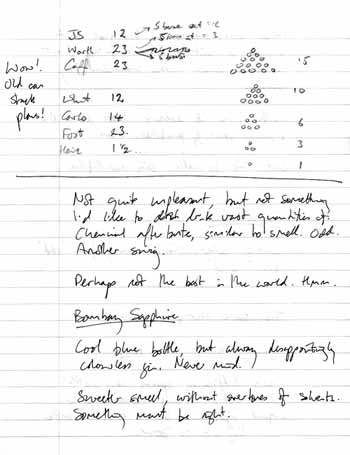 JS 12
23
23
Wow!
Old can
plans!
12
Carlo 14
Foot 23.
1 1/2 ...
15
10
6
3
1
Not quite unpleasant, but not something
I'd like to drink vast quantities of.
Chemical aftertaste, similar to smell. Odd.
Another swig.
Perhaps not the best in the world. Hmm.
Bombay Sapphire
Cool blue bottle, but always disappointingly
colourless gin. Never mind.
Sweeter smell, without overtones of solvents.
Something must be right.